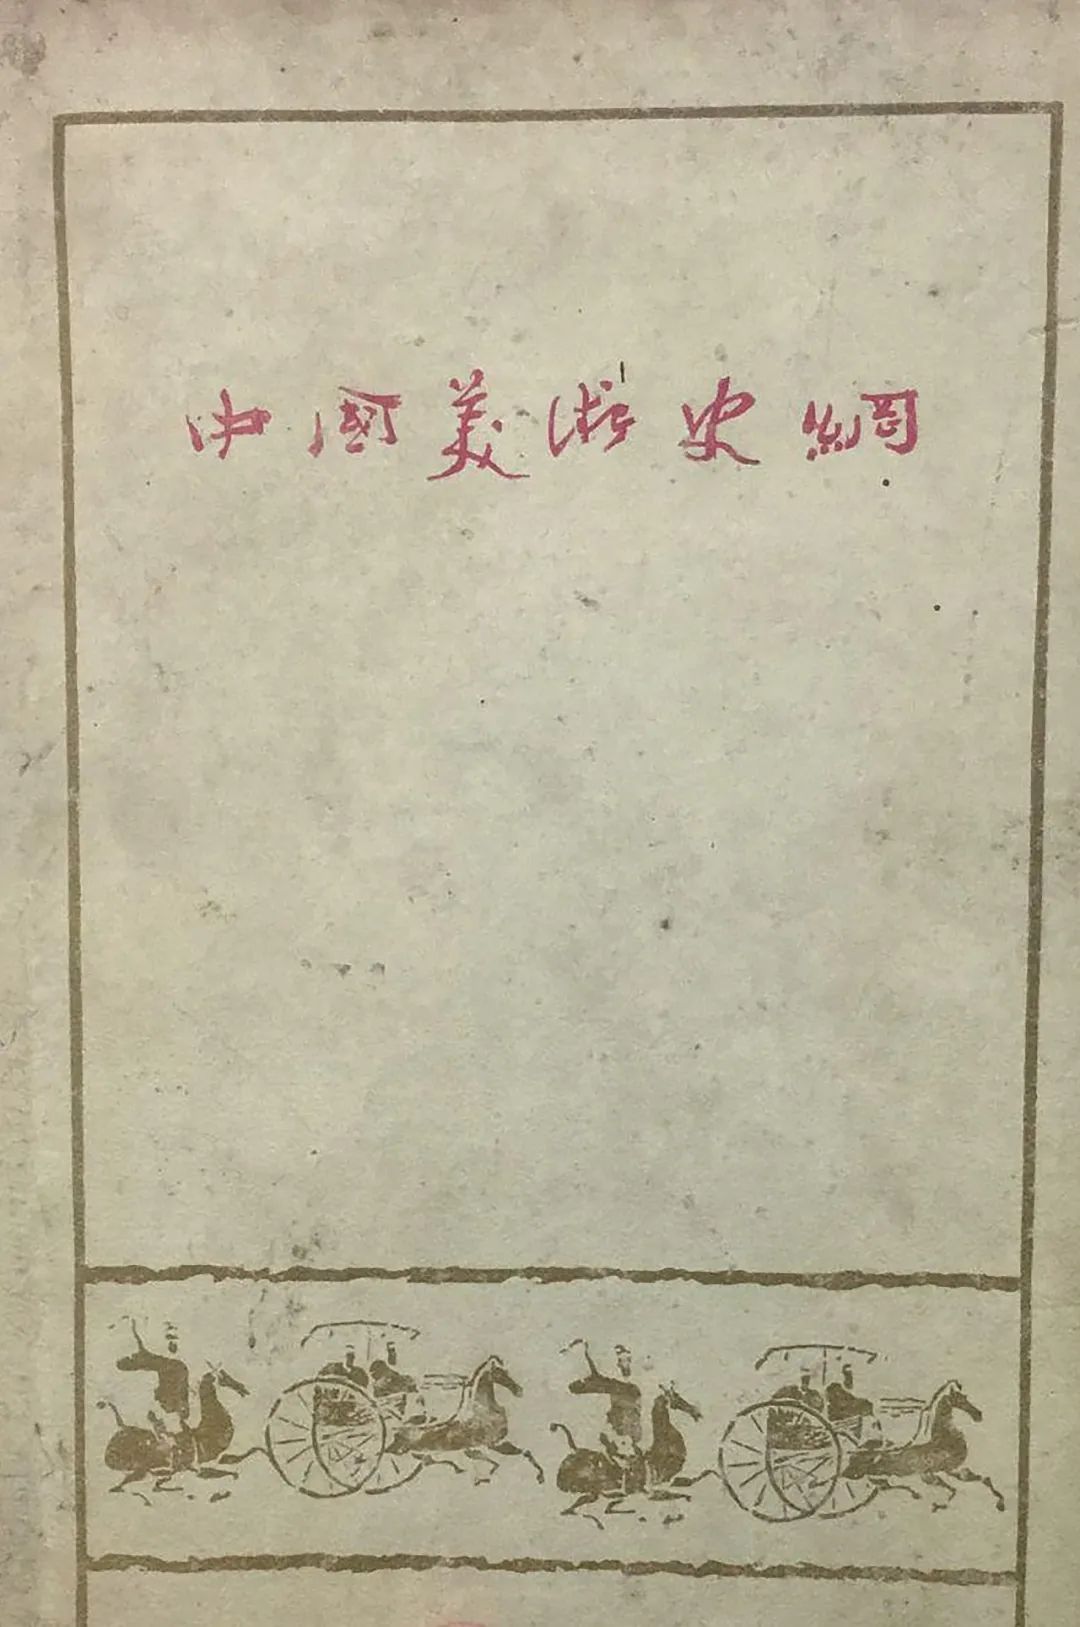 中國美術史綱